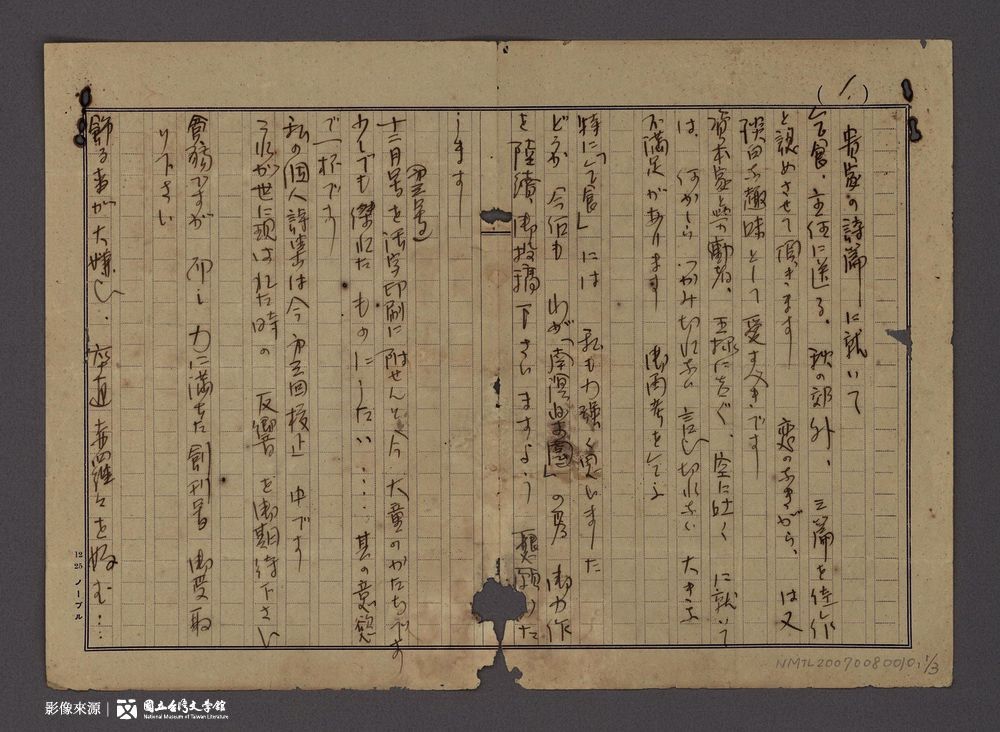 (1.)
貴家の詩篇に就いて
乞食、主任に送る、秋の郊外、三篇を佳作
と認めさせて頂きます 恋のなきがら、は又
淡白な趣味として愛すべきです
資本家と労働者、王様になぐ、空に吐く に就いて
は、何かしら つかみ切れない 言ひ切れない 大きな
不満足があります 御再考を乞ふ
特に「乞食」には 私も力強く思いました
どうか 今后も わが「南溟楽園」の為 御力作
を陸続、御投稿下さいますよう 懇願いた
します
(第三号)
十二月号を活字印刷に附せんと今 大童のかたちです
少しでも傑れた ものにしたい… 其の意慾
で一杯です
私の個人詩集は今 第三回校正中です
これが世に現はれた時の 反響を御期待下さい
貧弱ですが 而し 力に満ちた創刊号 御受取
り下さい
飾る事が大嫌い、卒直 赤裸々を好む…
12 25 ノーブル
NMTL20070080010, 1/3
影像來源 | 國立台灣文學館
National Museum of Taiwan Literature